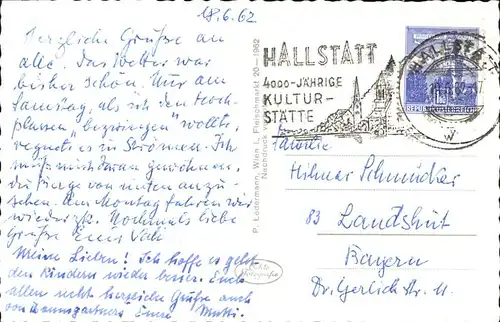 18.6.62
Herzliche Grüße an
alle. Das Wetter war
bisher schön. Nur am
Samstag, als ich den Hoch-
"bezwingen" wollte,
regnete es in Strömen. Ich
muß mich daran gewöhnen,
die Berge von unten anzu-
sehen. Am Montag fahren wir
wieder zk. Nochmals liebe
Grüße Euer Vati
Meine Lieben! Ich hoffe es geht
den Kindern wieder besser. Euch
allen recht herzliche Grüße auch
von Baumgartners Eure Mutti.
P. Ledermann, Wien I., Fleischmarkt 20 - 1962
HALLSTATT
4000-JÄHRIGE
KULTUR-
STÄTTE
HALLSTATT
Familie
Hilmar Schmucker
83 Landshut
Bayern
Dr. Gerlich Str. 11
Echte